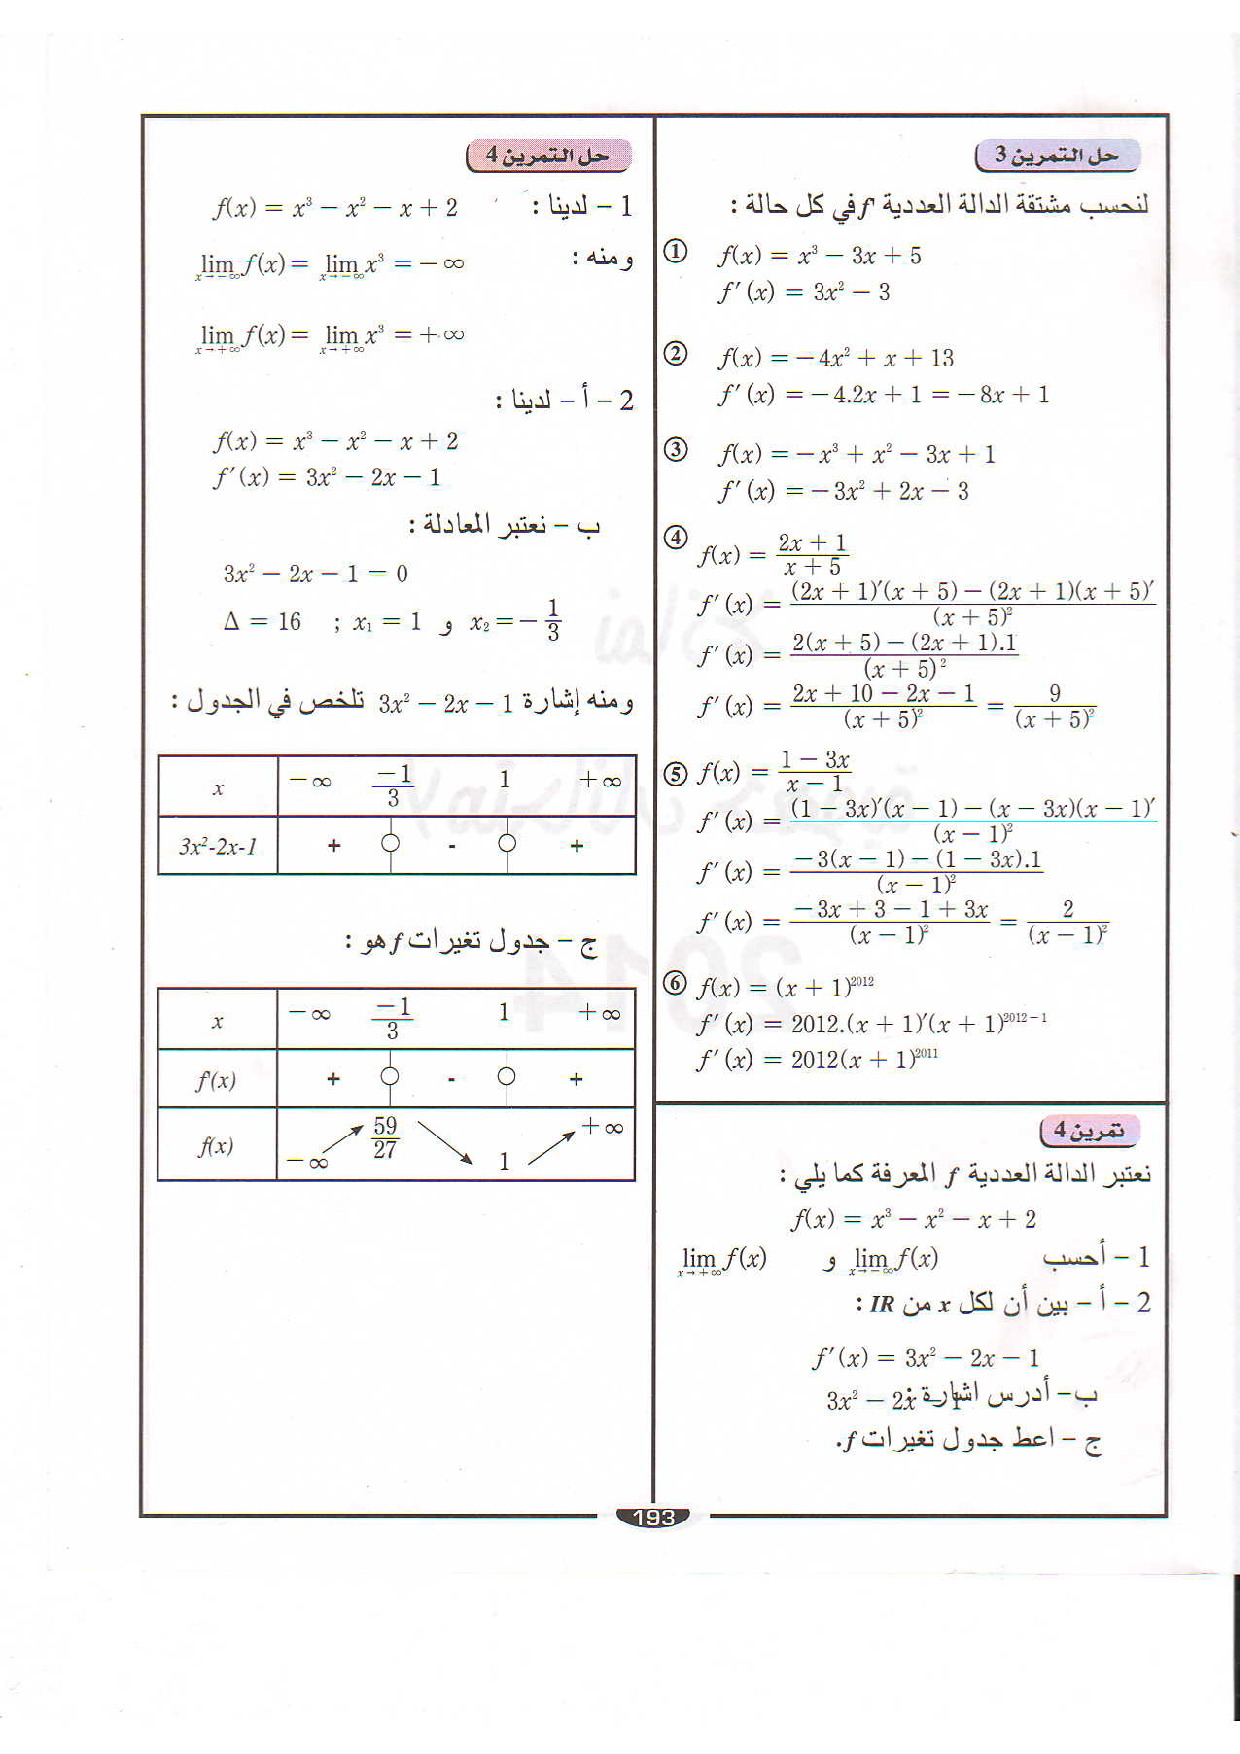 حل التمرين 3
لنحسب مشتقة الدالة العددية f في كل حالة :
① f(x) = x³ − 3x + 5
f′(x) = 3x² − 3
② f(x) = −4x² + x + 13
f′(x) = −4.2x + 1 = −8x + 1
③ f(x) = −x³ + x² − 3x + 1
f′(x) = −3x² + 2x − 3
④ f(x) = (2x + 1)/(x + 5)
f′(x) = ((2x + 1)′(x + 5) − (2x + 1)(x + 5)′)/(x + 5)²
f′(x) = (2(x + 5) − (2x + 1).1)/(x + 5)²
f′(x) = (2x + 10 − 2x − 1)/(x + 5)² = 9/(x + 5)²
⑤ f(x) = (1 − 3x)/(x − 1)
f′(x) = ((1 − 3x)′(x − 1) − (x − 3x)(x − 1)′)/(x − 1)²
f′(x) = (−3(x − 1) − (1 − 3x).1)/(x − 1)²
f′(x) = (−3x + 3 − 1 + 3x)/(x − 1)² = 2/(x − 1)²
⑥ f(x) = (x + 1)²⁰¹²
f′(x) = 2012.(x + 1)′(x + 1)²⁰¹²⁻¹
f′(x) = 2012(x + 1)²⁰¹¹
تمرين 4
نعتبر الدالة العددية f المعرفة كما يلي :
f(x) = x³ − x² − x + 2
1 - أحسب lim x→−∞ f(x) و lim x→+∞ f(x)
2 - أ - بين أن لكل x من IR :
f′(x) = 3x² − 2x − 1
ب- أدرس اشارة : 3x² − 2x − 1
ج - اعط جدول تغيرات f.
حل التمرين 4
1 - لدينا : f(x) = x³ − x² − x + 2
ومنه : lim x→−∞ f(x) = lim x→−∞ x³ = −∞
lim x→+∞ f(x) = lim x→+∞ x³ = +∞
2 - أ - لدينا :
f(x) = x³ − x² − x + 2
f′(x) = 3x² − 2x − 1
ب - نعتبر المعادلة :
3x² − 2x − 1 = 0
Δ = 16 ; x₁ = 1 و x₂ = −1/3
ومنه إشارة 3x² − 2x − 1 تلخص في الجدول :
x −∞ −1/3 1 +∞
3x²-2x-1 + - +
ج - جدول تغيرات f هو :
x −∞ −1/3 1 +∞
f'(x) + - +
f(x) −∞ 59/27 1 +∞
193
2014